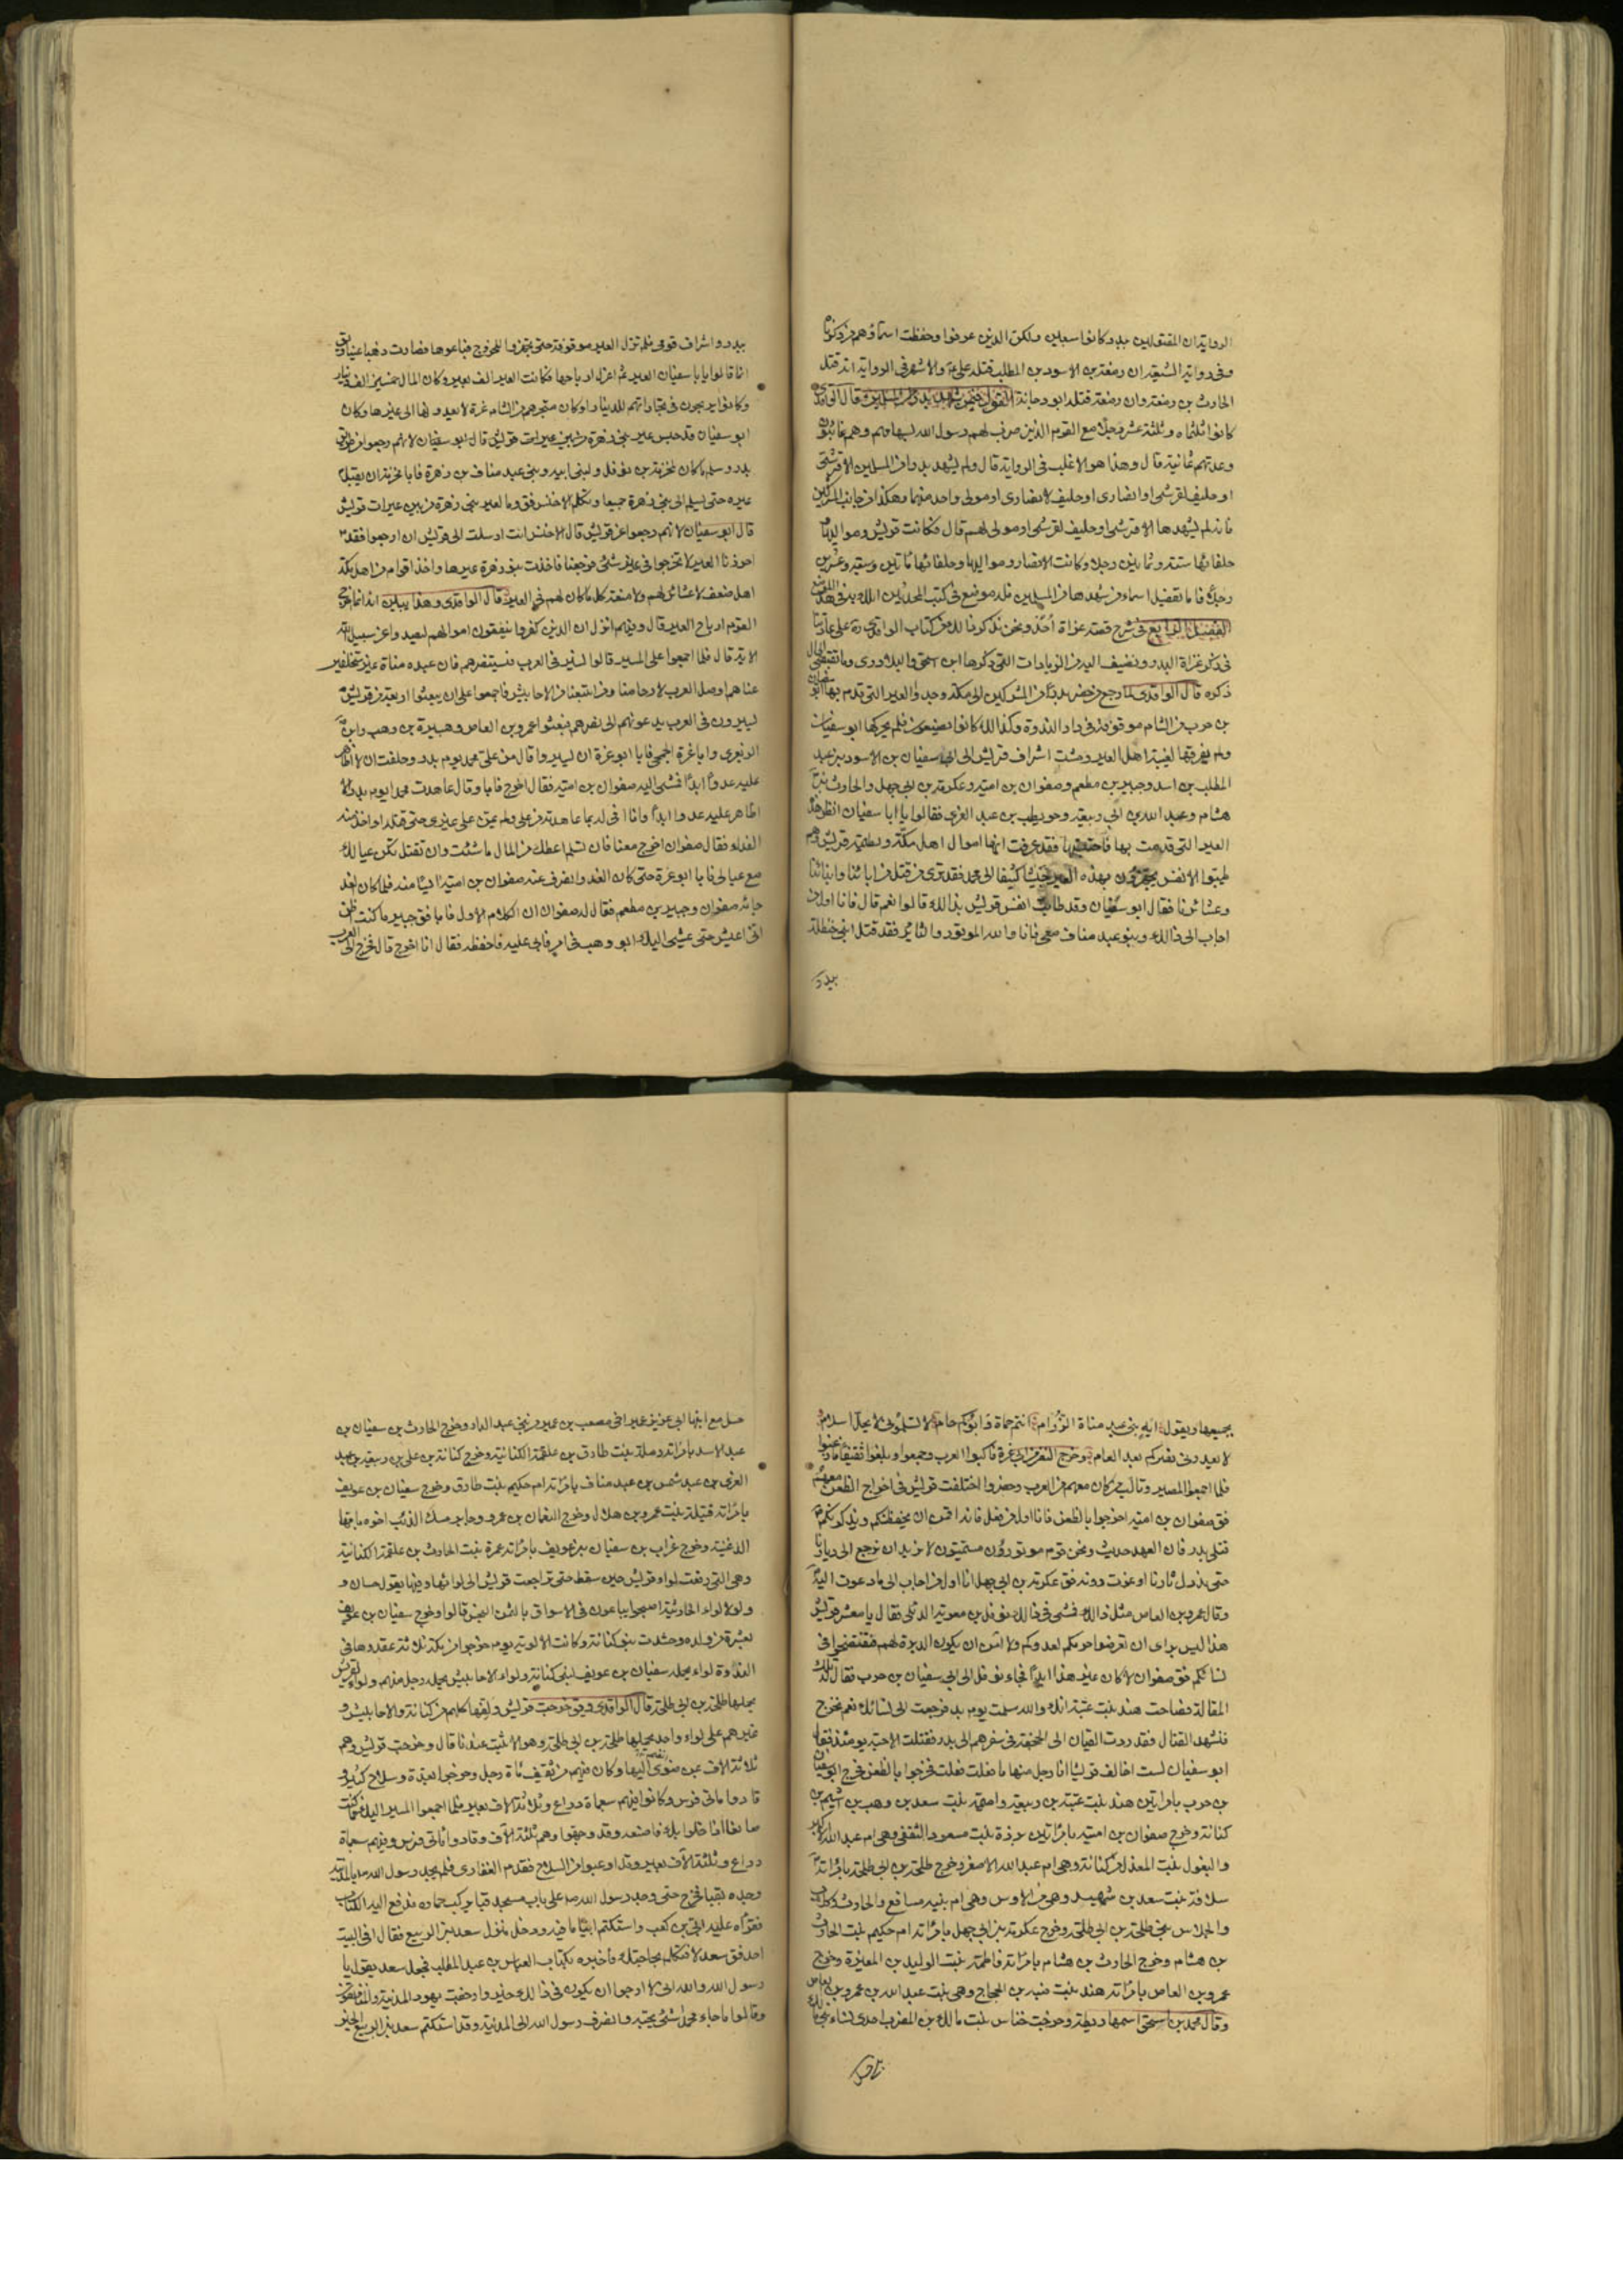 الرواية ان المقتولين ببدر كانوا سبعين ولكن الذين عرفوا وحفظت اسماؤهم من ذكرنا
وفى رواية الشيعة ان زمعة بن الاسود بن المطلب قتله على ع والاشهر فى الرواية انه قتل
الحارث بن زمعة وان زمعة قتله ابو دجانة القول فيمن شهد بدرا من المسلمين قال الواقدى
كانوا ثلثمائة وثلثة عشر رجلا مع القوم الذين ضرب لهم رسول الله بسهامهم وهم غائبون
وعدتهم ثمانية قال وهذا هو الاغلب فى الرواية قال ولم يشهد بدرا من المسلمين الا قرشى
او حليف لقرشى او انصارى او حليف لانصارى او مولى واحد منهما وهكذا من جانب المشركين
فانه لم يشهدها الا قرشى او حليف لقرشى او مولى لهم قال فكانت قريش ومواليها
حلفائها ستة وثمانين رجلا وكانت الانصار ومواليها وحلفائها مائتين وسبعة وعشرين
رجلا فاما تفصيل اسماء من شهدها من المسلمين فله موضع فى كتب المحدثين املك به فى هذا الموضع
الفصل الرابع فى شرح قصة غزاة احد ونحن نذكر ذلك من كتاب الواقدى ره على عادتنا
فى ذكر غزاة البدر ونضيف اليه من الزيادات التى ذكرها ابن اسحق والبلاذرى وما تقتضى الحال
ذكره قال الواقدى لما رجع من حضر بدرا من المشركين الى مكة وجدوا العير التى قدم بها ابو سفيان
بن حرب من الشام موقوفة فى دار الندوة وكذلك كانوا يصنعون فلم يحركها ابو سفيان
ولم يفرقها لغيبة اهل العير ومشت اشراف قريش الى ابى سفيان بن الاسود بن عبد
المطلب بن اسد وجبير بن مطعم وصفوان بن امية وعكرمة بن ابى جهل والحارث بن
هشام وعبد الله بن ابى ربيعة وحويطب بن عبد العزى فقالوا يا ابا سفيان انظر هذه
العير التى قدمت بها فاحتبسها فقد عرفت انها اموال اهل مكة ولطيمة قريش وهم
طيبوا الانفس يجهزون بهذه العير جيشا كثيفا الى محمد فقد ترى من قتل من ابائنا وابنائنا
وعشائرنا فقال ابو سفيان وقد طابت انفس قريش بذلك قالوا نعم قال فانا اول من
اجاب الى ذلك وبنو عبد مناف معى فانا والله الموتور والثائر فقد قتل ابنى حنظلة
ببدر و
ببدر واشراف قومى فلم تزل العير موقوفة حتى تجهزوا للخروج فباعوها فصارت ذهبا عينا ويق
انما قالوا يا با سفيان بع العير ثم اعزل ارباحها فكانت العير الف بعير وكان المال خمسين الف دينار
وكانوا يربحون فى تجاراتهم للدينار دينارا وكان متجرهم من الشام غزة لا يعدونها الى غيرها وكان
ابو سفيان قد حبس عير بنى زهرة من بين عيرات قريش قال ابو سفيان لانهم رجعوا من طريق
بدر وسلم ما كان لمخرمة بن نوفل ولبنى ابيه وبنى عبد مناف بن زهرة فابا مخرمة ان يقبل
عيره حتى يسلم الى بنى زهرة جميعا وتكلم الاخنس فق وما لعير بنى زهرة من بين عيرات قريش
قال ابو سفيان لانهم رجعوا عن قريش قال الاخنس انت ارسلت الى قريش ان ارجعوا فقد
احرزنا العير لا تخرجوا فى غير شئ فرجعنا فاخذت بنو زهرة عيرها واخذ اقوام من اهل مكة
اهل ضعف لا عشائر لهم ولا منعة كل ما كان لهم فى العير قال الواقدى وهذا يبين انه انما اخرج
القوم ارباح العير قال وفيهم انزل ان الذين كفروا ينفقون اموالهم ليصدوا عن سبيل الله
الاية قال فلما اجمعوا على المسير قالوا نسير فى العرب فنستنفرهم فان عبد مناة غير متخلفين
عنا هم اوصل العرب لارحامنا ومن اتبعنا من الاحابيش فاجمعوا على ان يبعثوا اربعة من قريش
يسيرون فى العرب يدعونهم الى نصرهم فبعثوا عمرو بن العاص وهبيرة بن وهب وابن
الزبعرى وابا غرة الجمحى فابا ابو عزة ان يسير وقال من على محمد يوم بدر وحلفت ان لا اظاهر
عليه عدوا ابدا فمشى اليه صفوان بن امية فقال اخرج فابا وقال عاهدت محمدا يوم بدر ان لا
اظاهر عليه عدوا ابدا وانا افى له بما عاهدته من على ولم يمن على غيرى حتى قتله او اخذ منه
الفداء فقال صفوان اخرج معنا فان تسلم اعطك من المال ما شئت وان تقتل تكن عيالك
مع عيالى فابا ابو عزة حتى كان الغد وانصرف عنه صفوان بن امية ايسا منه فلما كان الغد
جائه صفوان وجبير بن مطعم فقال له صفوان الكلام الاول فابا فق جبير ما كنت اظن
انى اعيش حتى يمشى اليك ابو وهب فى امر فابى عليه فاحفظه فقال انا اخرج قال فخرج الى العرب
يجمعها ويقول ايه بنى عبد مناة الرزام انتم حماة وابوكم حام لا تسلمونى لا يحل اسلام
لا يعدونى نصركم بعد العام وخرج النفر مع ابى عزة فالبوا العرب وجمعوا وبلغوا ثقيفا فاوعبوا
فلما اجمعوا المسير وتالب من كان معهم من العرب وحضروا اختلفت قريش فى اخراج الظعن معهم
فق صفوان بن امية اخرجوا بالظعن فانا اول من فعل فانه اقمن ان يحفظنكم ويذكرنكم
قتلى بدر فان العهد حديث ونحن قوم موتورون مستميتون لا نريد ان نرجع الى ديارنا
حتى ندرك ثارنا او نموت دونه فق عكرمة بن ابى جهل انا اول من اجاب الى ما دعوت اليه
وقال عمرو بن العاص مثل ذلك فمشى فى ذلك نوفل بن معوية الدئلى فقال يا معشر قريش
هذا ليس براى ان تعرضوا حرمكم لعدوكم ولا امن ان يكون الدبرة لهم فتفتضحوا فى
نسائكم فق صفوان لا كان غير هذا ابدا فجاء نوفل الى ابى سفيان بن حرب فقال له تلك
المقالة فصاحت هند بنت عتبة انك والله سلمت يوم بدر فرجعت الى نسائك نعم نخرج
فنشهد القتال فقد ردت القيان الى الجحفة فى سفرهم الى بدر فقتلت الاحبة يومئذ فقال
ابو سفيان لست اخالف قريشا انا رجل منها ما فعلت فعلت فخرجوا بالظعن فخرج ابو سفيان
بن حرب بامراتين هند بنت عتبة بن ربيعة واميمة بنت سعد بن وهب بن اشيم بن
كنانة وخرج صفوان بن امية بامراتين برزة بنت مسعود الثقفى وهى ام عبد الله الاكبر
والبغوم بنت المعذل من كنانة وهى ام عبد الله الاصغر وخرج طلحة بن ابى طلحة بامراته
سلافة بنت سعد بن شهيد وهى من الاوس وهى ام بنيه مسافع والحارث وكلاب
والجلاس بنى طلحة بن ابى طلحة وخرج عكرمة بن ابى جهل بامراته ام حكيم بنت الحارث
بن هشام وخرج الحارث بن هشام بامراته فاطمة بنت الوليد بن المغيرة وخرج
عمرو بن العاص بامراته هند بنت منبه بن الحجاج وهى بنت عبد الله بن عمرو بن العاص
وقال محمد بن اسحق اسمها ريطة وخرجت خناس بنت مالك بن المضرب احدى نساء بنى مالك
حسل مع ابنها ابى عزيز بن عمير اخى مصعب بن عمير من بنى عبد الدار وخرج الحارث بن سفيان بن
عبد الاسد بامراته رملة بنت طارق بن علقمة الكنانية وخرج كنانة بن على بن ربيعة بن عبد
العزى بن عبد شمس بن عبد مناف بامراته ام حكيم بنت طارق وخرج سفيان بن عويف
بامراته قتيلة بنت عمرو بن هلال وخرج النعمان بن عمرو وجابر مسك الذئب اخوه بامهما
الدغنية وخرج غراب بن سفيان بن عويف بامراته عمرة بنت الحارث بن علقمة الكنانية
وهى التى رفعت لواء قريش حين سقط حتى تراجعت قريش الى لوائها وفيها يقول حسان و
ولولا لواء الحارثية اصبحوا يباعون فى الاسواق بالثمن البخس قالوا وخرج سفيان بن عويف
بعشرة من ولده وحشدت بنو كنانة وكانت الالوية يوم خرجوا من مكة ثلاثة عقدوها فى
الندوة لواء يحمله سفيان بن عويف لبنى كنانة ولواء الاحابيش يحمله رجل منهم ولواء لقريش
يحملها طلحة بن ابى طلحة قال الواقدى ويق خرجت قريش ولفها كلهم من كنانة والاحابيش و
غيرهم على لواء واحد يحملها طلحة بن ابى طلحة وهو الاثبت عندنا قال وخرجت قريش وهم
ثلاثة الاف بمن ضوى اليها وكان فيهم من ثقيف مائة رجل وخرجوا بعدة وسلاح كثير و
قادوا مائتى فرس وكانوا فيهم سبعمائة دراع وثلاثة الاف بعير فلما اجمعوا المسير
دراع وثلثة الاف بعير وقد اوعبوا من السلاح فقدم الغفارى فلم يجد رسول الله ص بالمدينة
وجده بقبا فخرج حتى وجد رسول الله ص على باب مسجد قبا يركب حماره فدفع اليه الكتاب
فقراه عليه ابى بن كعب واستكتم ابيا ما فيه ودخل منزل سعد بن الربيع فقال افى البيت
احد فق سعد لا فتكلم بحاجتك فاخبره بكتاب العباس بن عبد المطلب فجعل سعد يقول يا
رسول الله والله انى لارجوا ان يكون فى ذلك خير وارجفت يهود المدينة والمنافقون
وقالوا ما جاء محمدا شئ يحبه وانصرف رسول الله الى المدينة وقد استكتم سعد بن الربيع الخبر